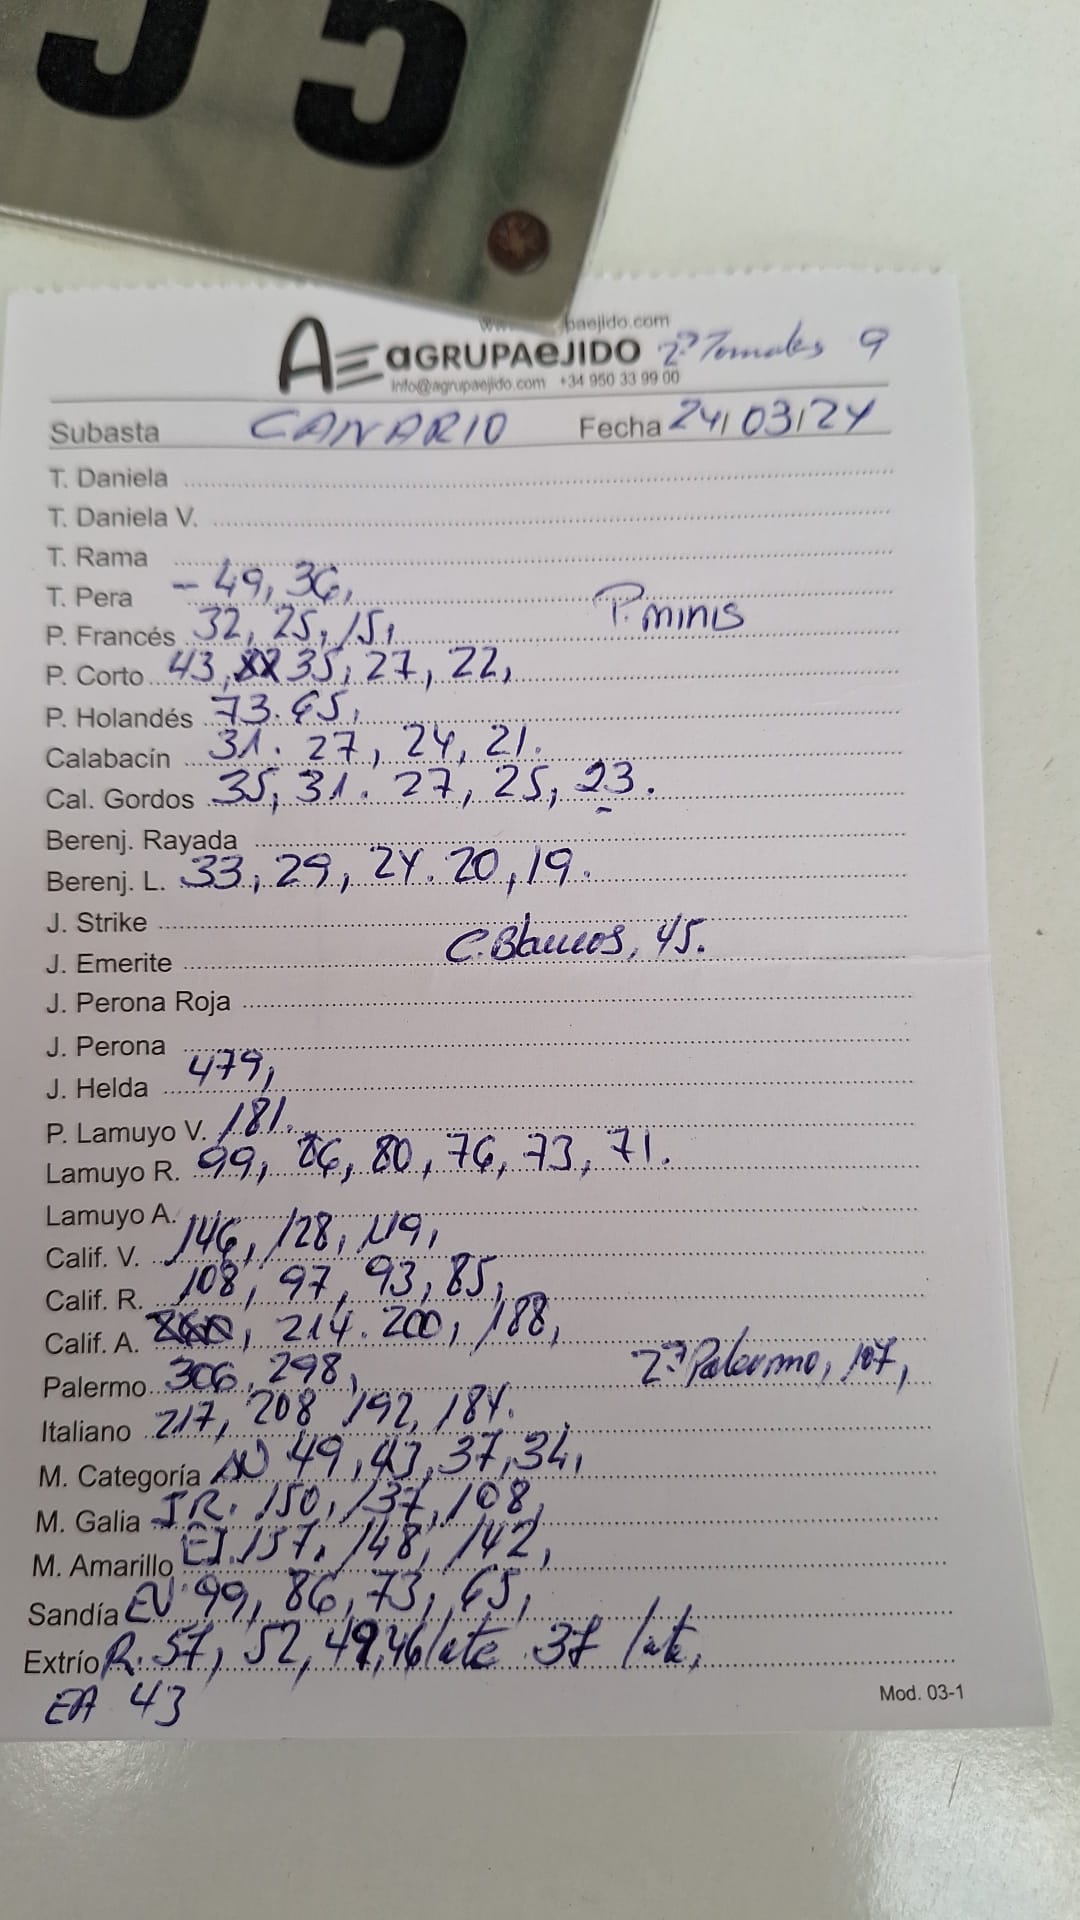 5
paejido.com
AE aGRUPAeJIDO 2ª Tomates 9
info@agrupaejido.com +34 950 33 99 00
Subasta CANARIO Fecha 24/03/24
T. Daniela
T. Daniela V.
T. Rama
T. Pera - 49, 36,
P. minis
P. Francés 32, 25, 15,
P. Corto 43, 35, 27, 22,
P. Holandés 73. 65,
Calabacín 31. 27, 24, 21.
Cal. Gordos 35, 31. 27, 25, 23.
Berenj. Rayada
Berenj. L. 33, 29, 24. 20, 19.
J. Strike
C. Blancos, 45.
J. Emerite
J. Perona Roja
J. Perona
J. Helda 479,
P. Lamuyo V. 181.
Lamuyo R. 99, 86, 80, 76, 73, 71.
Lamuyo A.
Calif. V. 146, 128, 119,
Calif. R. 108, 97, 93, 85,
Calif. A. , 214. 200, 188,
Palermo 306, 298, 2ª Palermo, 107,
Italiano 217, 208 192, 184.
M. Categoría 49, 43, 37, 34,
M. Galia IR. 150, 137, 108,
M. Amarillo EI. 157. 148, 142,
Sandía EV 99, 86, 73, 65,
Extrío R. 57, 52, 49, 46 late 37 late,
EA 43
Mod. 03-1